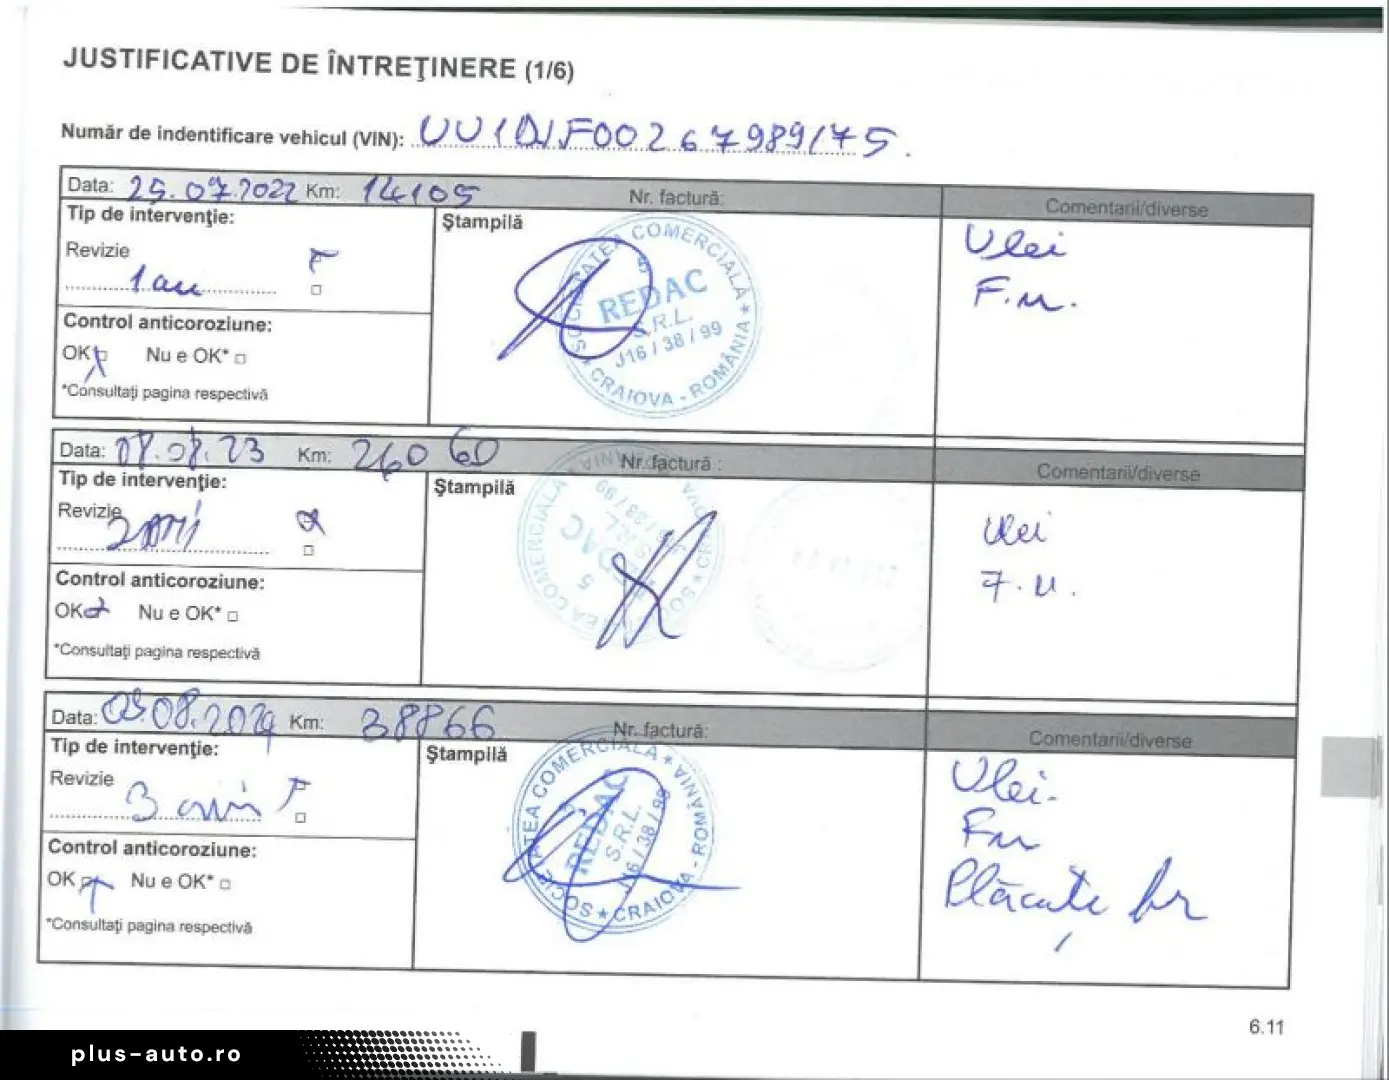 JUSTIFICATIVE DE ÎNTREŢINERE (1/6)
Număr de indentificare vehicul (VIN): UU1DJF00267989175.
Data: 25.07.2022 Km: 14105 Nr. factură: Comentarii/diverse
Tip de intervenţie:
Revizie
1 an
Control anticoroziune:
OK Nu e OK*
*Consultaţi pagina respectivă
Ştampilă
SOCIETATEA COMERCIALĂ
5
REDAC
S.R.L.
J16 / 38 / 99
CRAIOVA - ROMÂNIA
Ulei
F.M.
Data: 08.08.23 Km: 26060 Nr. factură : Comentarii/diverse
Tip de intervenţie:
Revizie
2 ani
Control anticoroziune:
OK Nu e OK*
*Consultaţi pagina respectivă
Ştampilă
REDAC
S.R.L.
5
Ulei
F.M.
Data: 09.08.2024 Km: 38866 Nr. factură: Comentarii/diverse
Tip de intervenţie:
Revizie
3 ani
Control anticoroziune:
OK Nu e OK*
*Consultaţi pagina respectivă
Ştampilă
SOCIETATEA COMERCIALĂ
REDAC
S.R.L.
J16 / 38 / 99
CRAIOVA - ROMÂNIA
Ulei.
FM
Plăcuţe fr
6.11
plus-auto.ro